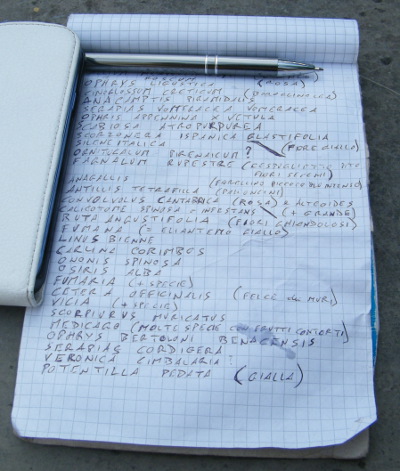 OPHRYS (ROSA)
CINOGLOSSUM CRETICUM
ANACAMPTIS PIRAMIDALIS
SERAPIAS VOMERACEA VOMERACEA
OPHRIS APPENNINA X VETULA
SCABIOSA ATROPURPUREA
SCORZONERA ISPANICA GLASTIFOLIA
SILENE ITALICA (FIORE GIALLO)
ORNITOGALUM PIRENAICUM ?
FAGNALUM RUPESTRE
FIORI SECHI)
ANAGALLIS (FIORELLINO PICCOLO BLU INTENSO)
ANTILLIS TETRAFILLA (PALLONCINI)
CONVOLVOLUS CANTABRICA (ROSA) X ALTEOIDES
CALICOTOME SPINOSA O INFESTANS (+ GRANDE)
RUTA ANGUSTIFOLIA (FIORI GHIANDOLOSI)
FUMANA (= ELIANTEMO GIALLO)
LINUS BIENNE
CARLINA CORIMBOS
ONONIS SPINOSA
OSIRIS ALBA
FUMARIA (+ SPECIE)
CETERA OFFICINALIS (FELCE dei MURI)
VICIA (+ SPECIE)
SCORPIURUS MURICATUS
MEDICAGO (MOLTE SPECIE CON FRUTTI CONTORTI)
OPHRYS BERTOLONI BENACENSIS
SERAPIAS CORDIGERA
VERONICA CIMBALARIA
POTENTILLA PEDATA (GIALLA)